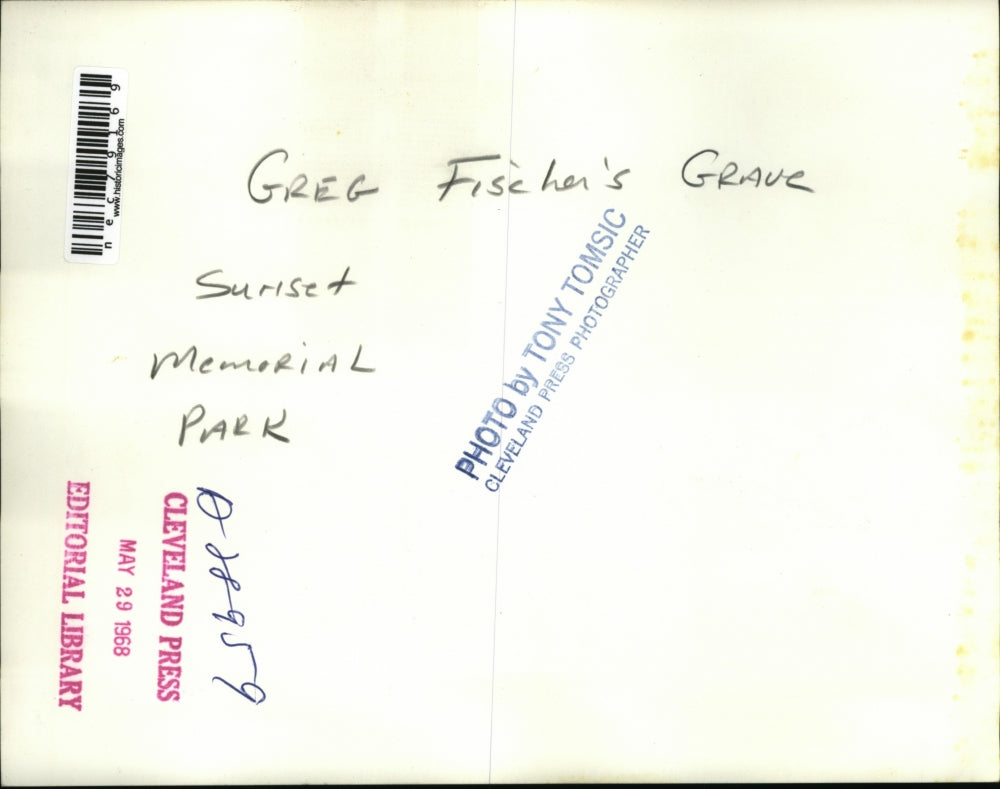 GREG Fischer's GRAVE
Sunset
Memorial
PARK
PHOTO by TONY TOMSIC
CLEVELAND PRESS PHOTOGRAPHER
CLEVELAND PRESS
MAY 29 1968
EDITORIAL LIBRARY
www.historicimages.com
nec79169